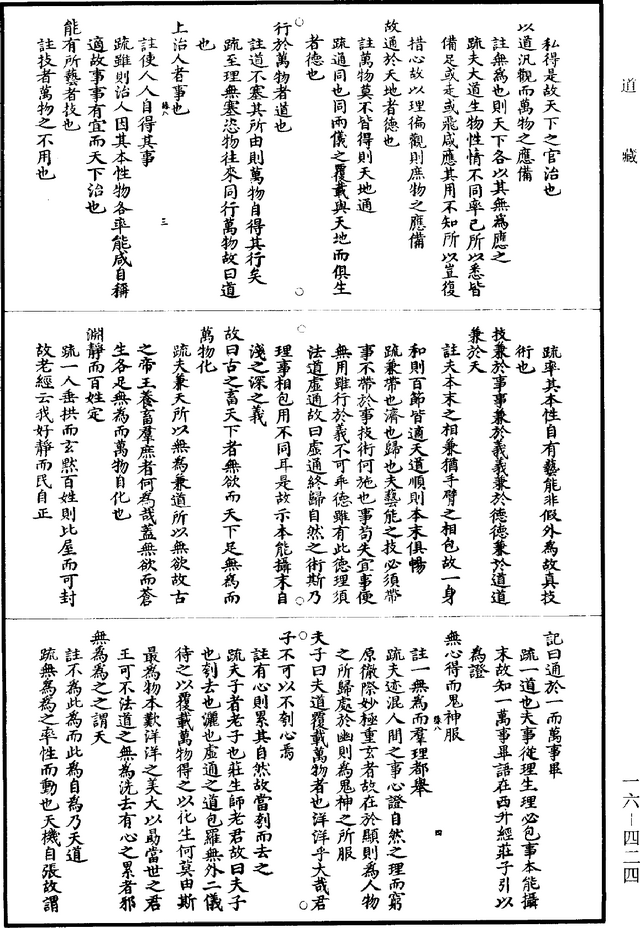 道藏
私得是故天下之官治也
以道汎觀而萬物之應備
註無為也則天下各以其無為應之
疏夫大道生物性情不同率己所以悉皆
備足或走或飛咸應其用不知所以豈復
措心故以理徧觀則庶物之應備
故通於天地者德也
註萬物莫不皆得則天地通
疏通同也同兩儀之覆載與天地而俱生
者德也
行於萬物者道也
註道不塞其所由則萬物自得其行矣
疏至理無塞恣物往來同行萬物故曰道
也
上治人者事也
註使人人自得其事
疏雖則治人因其本性物各率能咸自稱
適故事事有宜而天下治也
能有所藝者技也
註技者萬物之不用也
三
疏率其本性自有藝能非假外為故真技
術也
技兼於事事兼於義義兼於德德兼於道道
兼於天
註夫本末之相兼猶手臂之相包故一身
和則百節皆適天道順則本末俱暢
疏兼帶也濟也歸也夫藝能之技必須帶
事不帶於事技術何施也事苟失宜事便
無用雖行於義不可乖德雖有此德理須
法道虛通故曰虛通終歸自然之術斯乃
理事相包用不同耳是故示本能攝末自
淺之深之義
故曰古之畜天下者無欲而天下足無為而
萬物化
疏夫兼天所以無為兼道所以無欲故古
之帝王養畜羣庶者何為哉蓋無欲而蒼
生各足無為而萬物自化也
淵靜而百姓定
疏一人垂拱而玄默百姓則比屋而可封
故老經云我好靜而民自正
記曰通於一而萬事畢
疏一道也夫事從理生理必包事本能攝
末故知一萬事畢語在西升經莊子引以
為證
無心得而鬼神服
註一無為而羣理都舉
疏夫迹混人間之事心證自然之理而窮
原徹際妙極重玄者故在於顯則為人物
之所歸處於幽則為鬼神之所服
夫子曰夫道覆載萬物者也洋洋乎大哉君
子不可以不刳心焉
註有心則累其自然故當刳而去之
疏夫子者老子也莊生師老君故曰夫子
也刳去也灑也虛通之道包羅無外二儀
待之以覆載萬物得之以化生何莫由斯
最為物本歎洋洋之美大以勗當世之君
王可不法道之無為洗去有心之累者邪
無為為之之謂天
註不為此為而此為自為乃天道
疏無為為之率性而動也天機自張故謂
四
一六—四二四